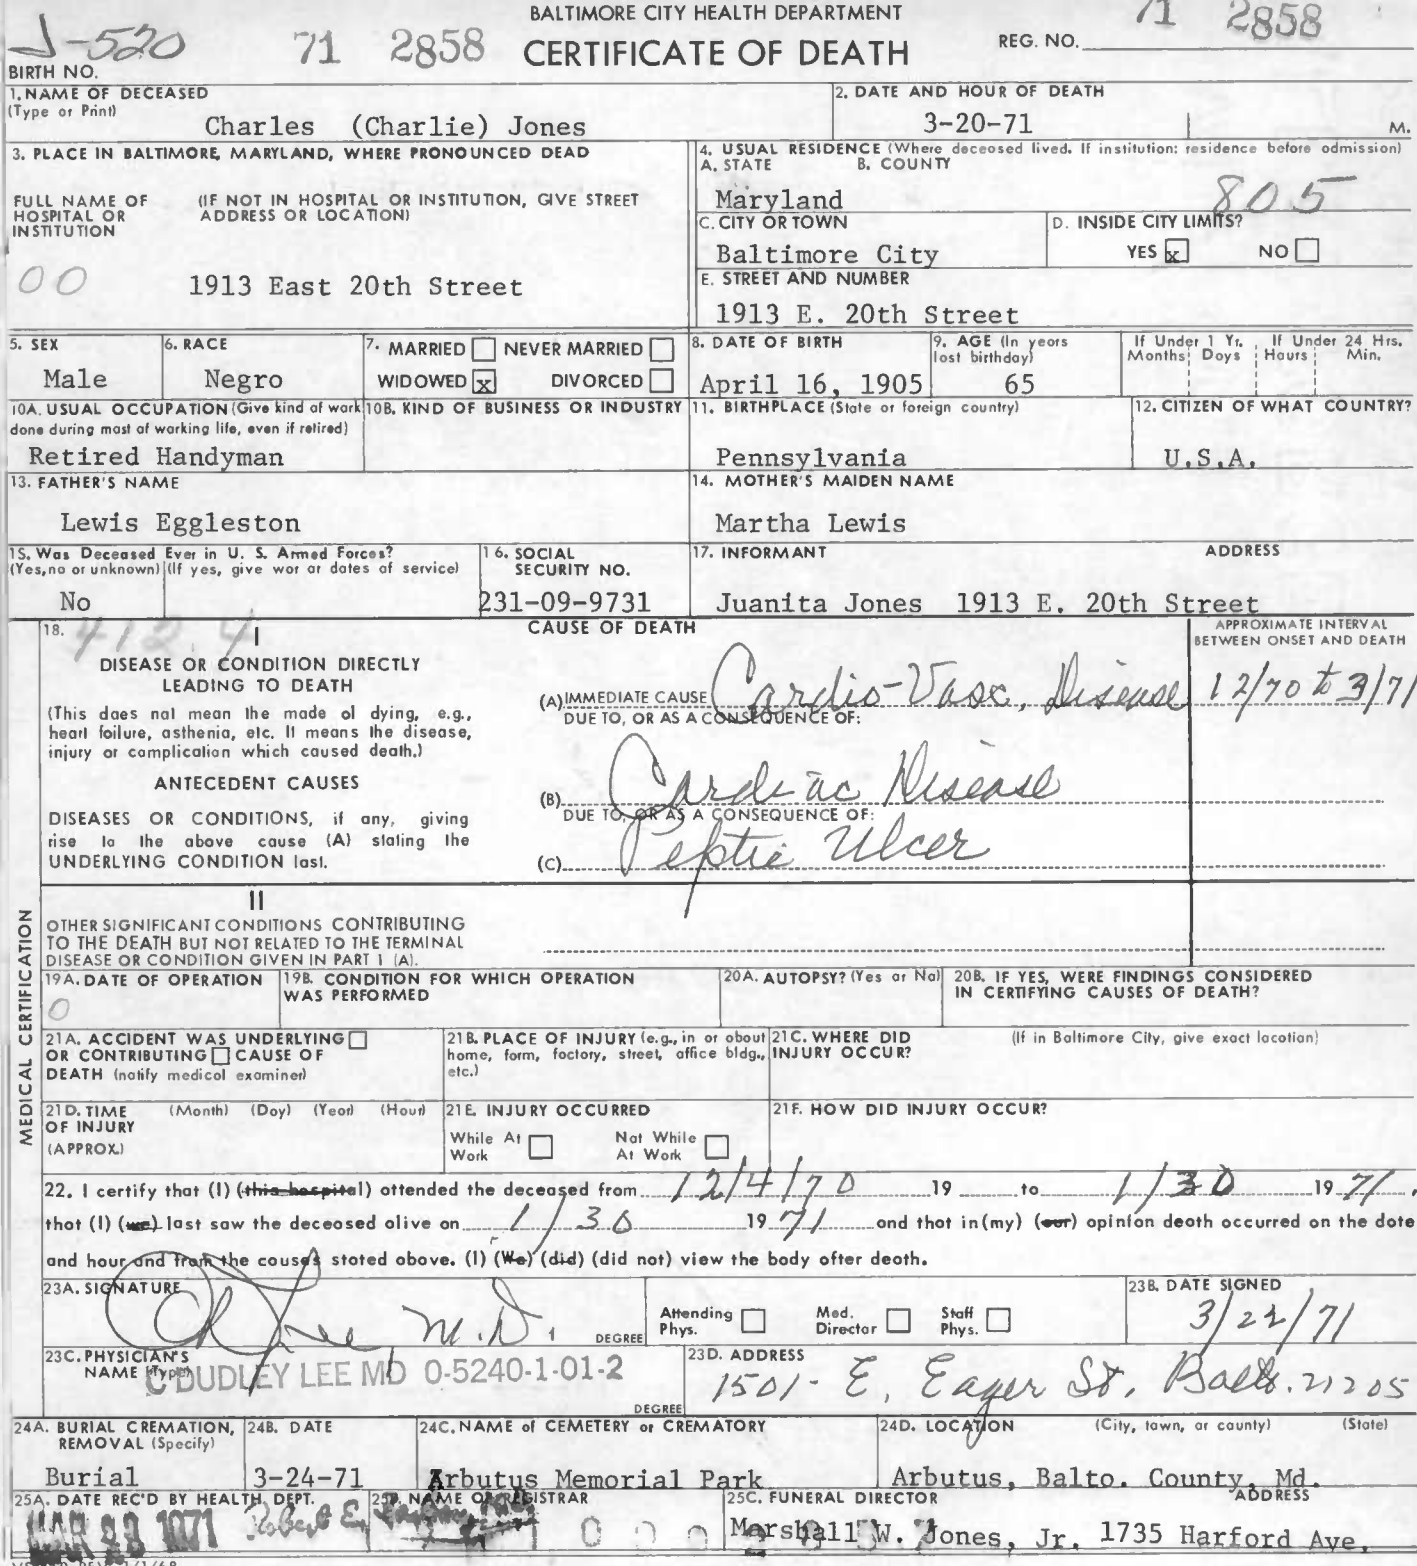 BALTIMORE CITY HEALTH DEPARTMENT
J-520 71 2858 CERTIFICATE OF DEATH REG. NO. 71 2858
BIRTH NO.
1. NAME OF DECEASED
(Type or Print)
Charles (Charlie) Jones
2. DATE AND HOUR OF DEATH
3-20-71 M.
3. PLACE IN BALTIMORE, MARYLAND, WHERE PRONOUNCED DEAD
FULL NAME OF HOSPITAL OR INSTITUTION
(IF NOT IN HOSPITAL OR INSTITUTION, GIVE STREET
ADDRESS OR LOCATION)
00 1913 East 20th Street
4. USUAL RESIDENCE (Where deceased lived. If institution: residence before admission)
A. STATE B. COUNTY
Maryland 805
C. CITY OR TOWN
Baltimore City
D. INSIDE CITY LIMITS?
YES x NO
E. STREET AND NUMBER
1913 E. 20th Street
5. SEX
Male
6. RACE
Negro
7. MARRIED NEVER MARRIED
WIDOWED x DIVORCED
8. DATE OF BIRTH
April 16, 1905
9. AGE (In years
last birthday)
65
If Under 1 Yr. If Under 24 Hrs.
Months Days Hours Min.
10A. USUAL OCCUPATION (Give kind of work
done during most of working life, even if retired)
Retired Handyman
10B. KIND OF BUSINESS OR INDUSTRY
11. BIRTHPLACE (State or foreign country)
Pennsylvania
12. CITIZEN OF WHAT COUNTRY?
U.S.A.
13. FATHER'S NAME
Lewis Eggleston
14. MOTHER'S MAIDEN NAME
Martha Lewis
15. Was Deceased Ever in U. S. Armed Forces?
(Yes, no or unknown) (If yes, give war or dates of service)
No
16. SOCIAL
SECURITY NO.
231-09-9731
17. INFORMANT ADDRESS
Juanita Jones 1913 E. 20th Street
18. 412.4 I
CAUSE OF DEATH
APPROXIMATE INTERVAL
BETWEEN ONSET AND DEATH
DISEASE OR CONDITION DIRECTLY
LEADING TO DEATH
(This does not mean the mode of dying, e.g.,
heart failure, asthenia, etc. It means the disease,
injury or complication which caused death.)
(A) IMMEDIATE CAUSE Cardio-Vasc. Disease 12/70 to 3/71
DUE TO, OR AS A CONSEQUENCE OF:
ANTECEDENT CAUSES
DISEASES OR CONDITIONS, if any, giving
rise to the above cause (A) stating the
UNDERLYING CONDITION last.
(B) Cardiac Disease
DUE TO, OR AS A CONSEQUENCE OF:
(C) Peptic Ulcer
II
OTHER SIGNIFICANT CONDITIONS CONTRIBUTING
TO THE DEATH BUT NOT RELATED TO THE TERMINAL
DISEASE OR CONDITION GIVEN IN PART 1 (A).
MEDICAL CERTIFICATION
19A. DATE OF OPERATION
0
19B. CONDITION FOR WHICH OPERATION
WAS PERFORMED
20A. AUTOPSY? (Yes or No)
20B. IF YES, WERE FINDINGS CONSIDERED
IN CERTIFYING CAUSES OF DEATH?
21A. ACCIDENT WAS UNDERLYING
OR CONTRIBUTING CAUSE OF
DEATH (notify medical examiner)
21B. PLACE OF INJURY (e.g., in or about
home, farm, factory, street, office bldg.,
etc.)
21C. WHERE DID (If in Baltimore City, give exact location)
INJURY OCCUR?
21D. TIME (Month) (Day) (Year) (Hour)
OF INJURY
(APPROX.)
21E. INJURY OCCURRED
While At Work Not While At Work
21F. HOW DID INJURY OCCUR?
22. I certify that (I) (this hospital) attended the deceased from 12/4/70 19 to 1/30 1971,
that (I) (we) last saw the deceased alive on 1/30 1971 and that in (my) (our) opinion death occurred on the date
and hour and from the causes stated above. (I) (We) (did) (did not) view the body after death.
23A. SIGNATURE
Lee, M.D. DEGREE
Attending Phys. Med. Director Staff Phys.
23B. DATE SIGNED
3/22/71
23C. PHYSICIAN'S
NAME (Type)
C DUDLEY LEE MD 0-5240-1-01-2
DEGREE
23D. ADDRESS
1501- E. Eager St. Balto. 21205
24A. BURIAL CREMATION,
REMOVAL (Specify)
Burial
24B. DATE
3-24-71
24C. NAME of CEMETERY or CREMATORY
Arbutus Memorial Park
24D. LOCATION (City, town, or county) (State)
Arbutus, Balto. County, Md.
25A. DATE REC'D BY HEALTH DEPT.
MAR 23 1971
25B. NAME OF REGISTRAR
Robert E.
25C. FUNERAL DIRECTOR ADDRESS
Marshall W. Jones, Jr. 1735 Harford Ave.